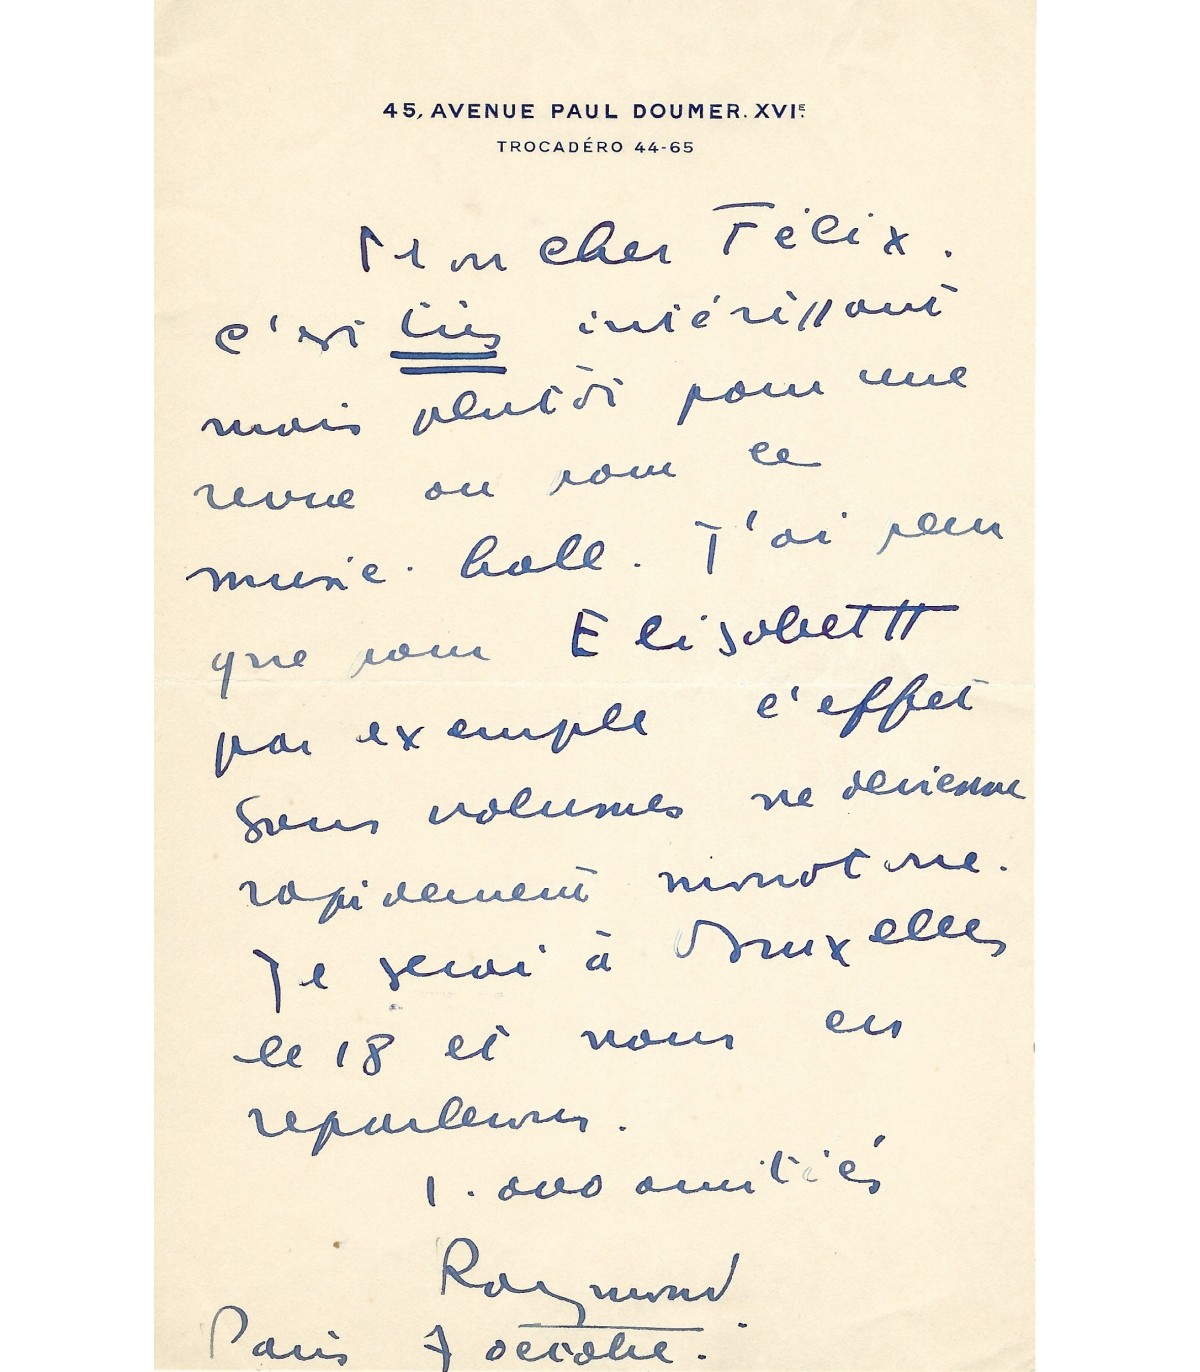 45, AVENUE PAUL DOUMER. XVIE.
TROCADÉRO 44-65
Mon cher Félix.
C'est très intéressant
mais plutôt pour une
revue ou pour le
music-hall. J'ai peur
que pour Elisabeth
par exemple l'effet
sans volumes ne devienne
rapidement monotone.
Je serai à Bruxelles
le 18 et nous en
reparlerons.
1.000 amitiés
Raymond
Paris 7 octobre.